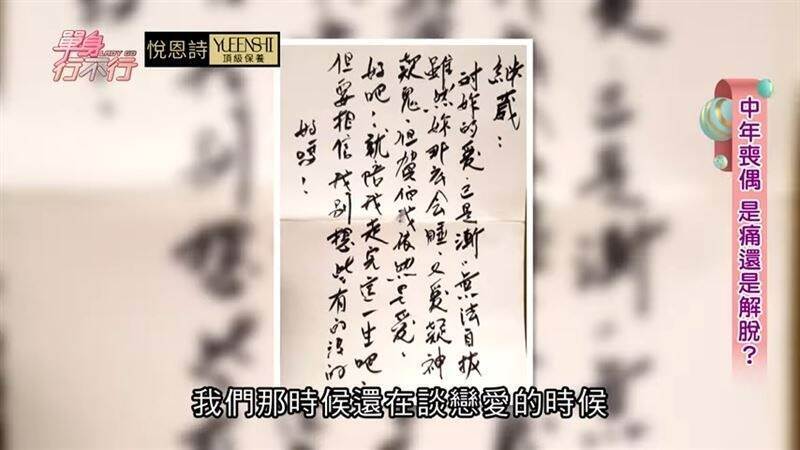 單身
LADY GO
行不行
悅恩詩
YUEENSHI
頂級保養
継葳：
對妳的愛.已是漸〻無法自拔
雖然妳那么会睡.又爱疑神
疑鬼.但賀伯我依然是愛.
好吧！就陪我走完這一生吧！
但要相信我別想些有的沒的
好嗎？
中年喪偶 是痛還是解脫？
我們那時候還在談戀愛的時候